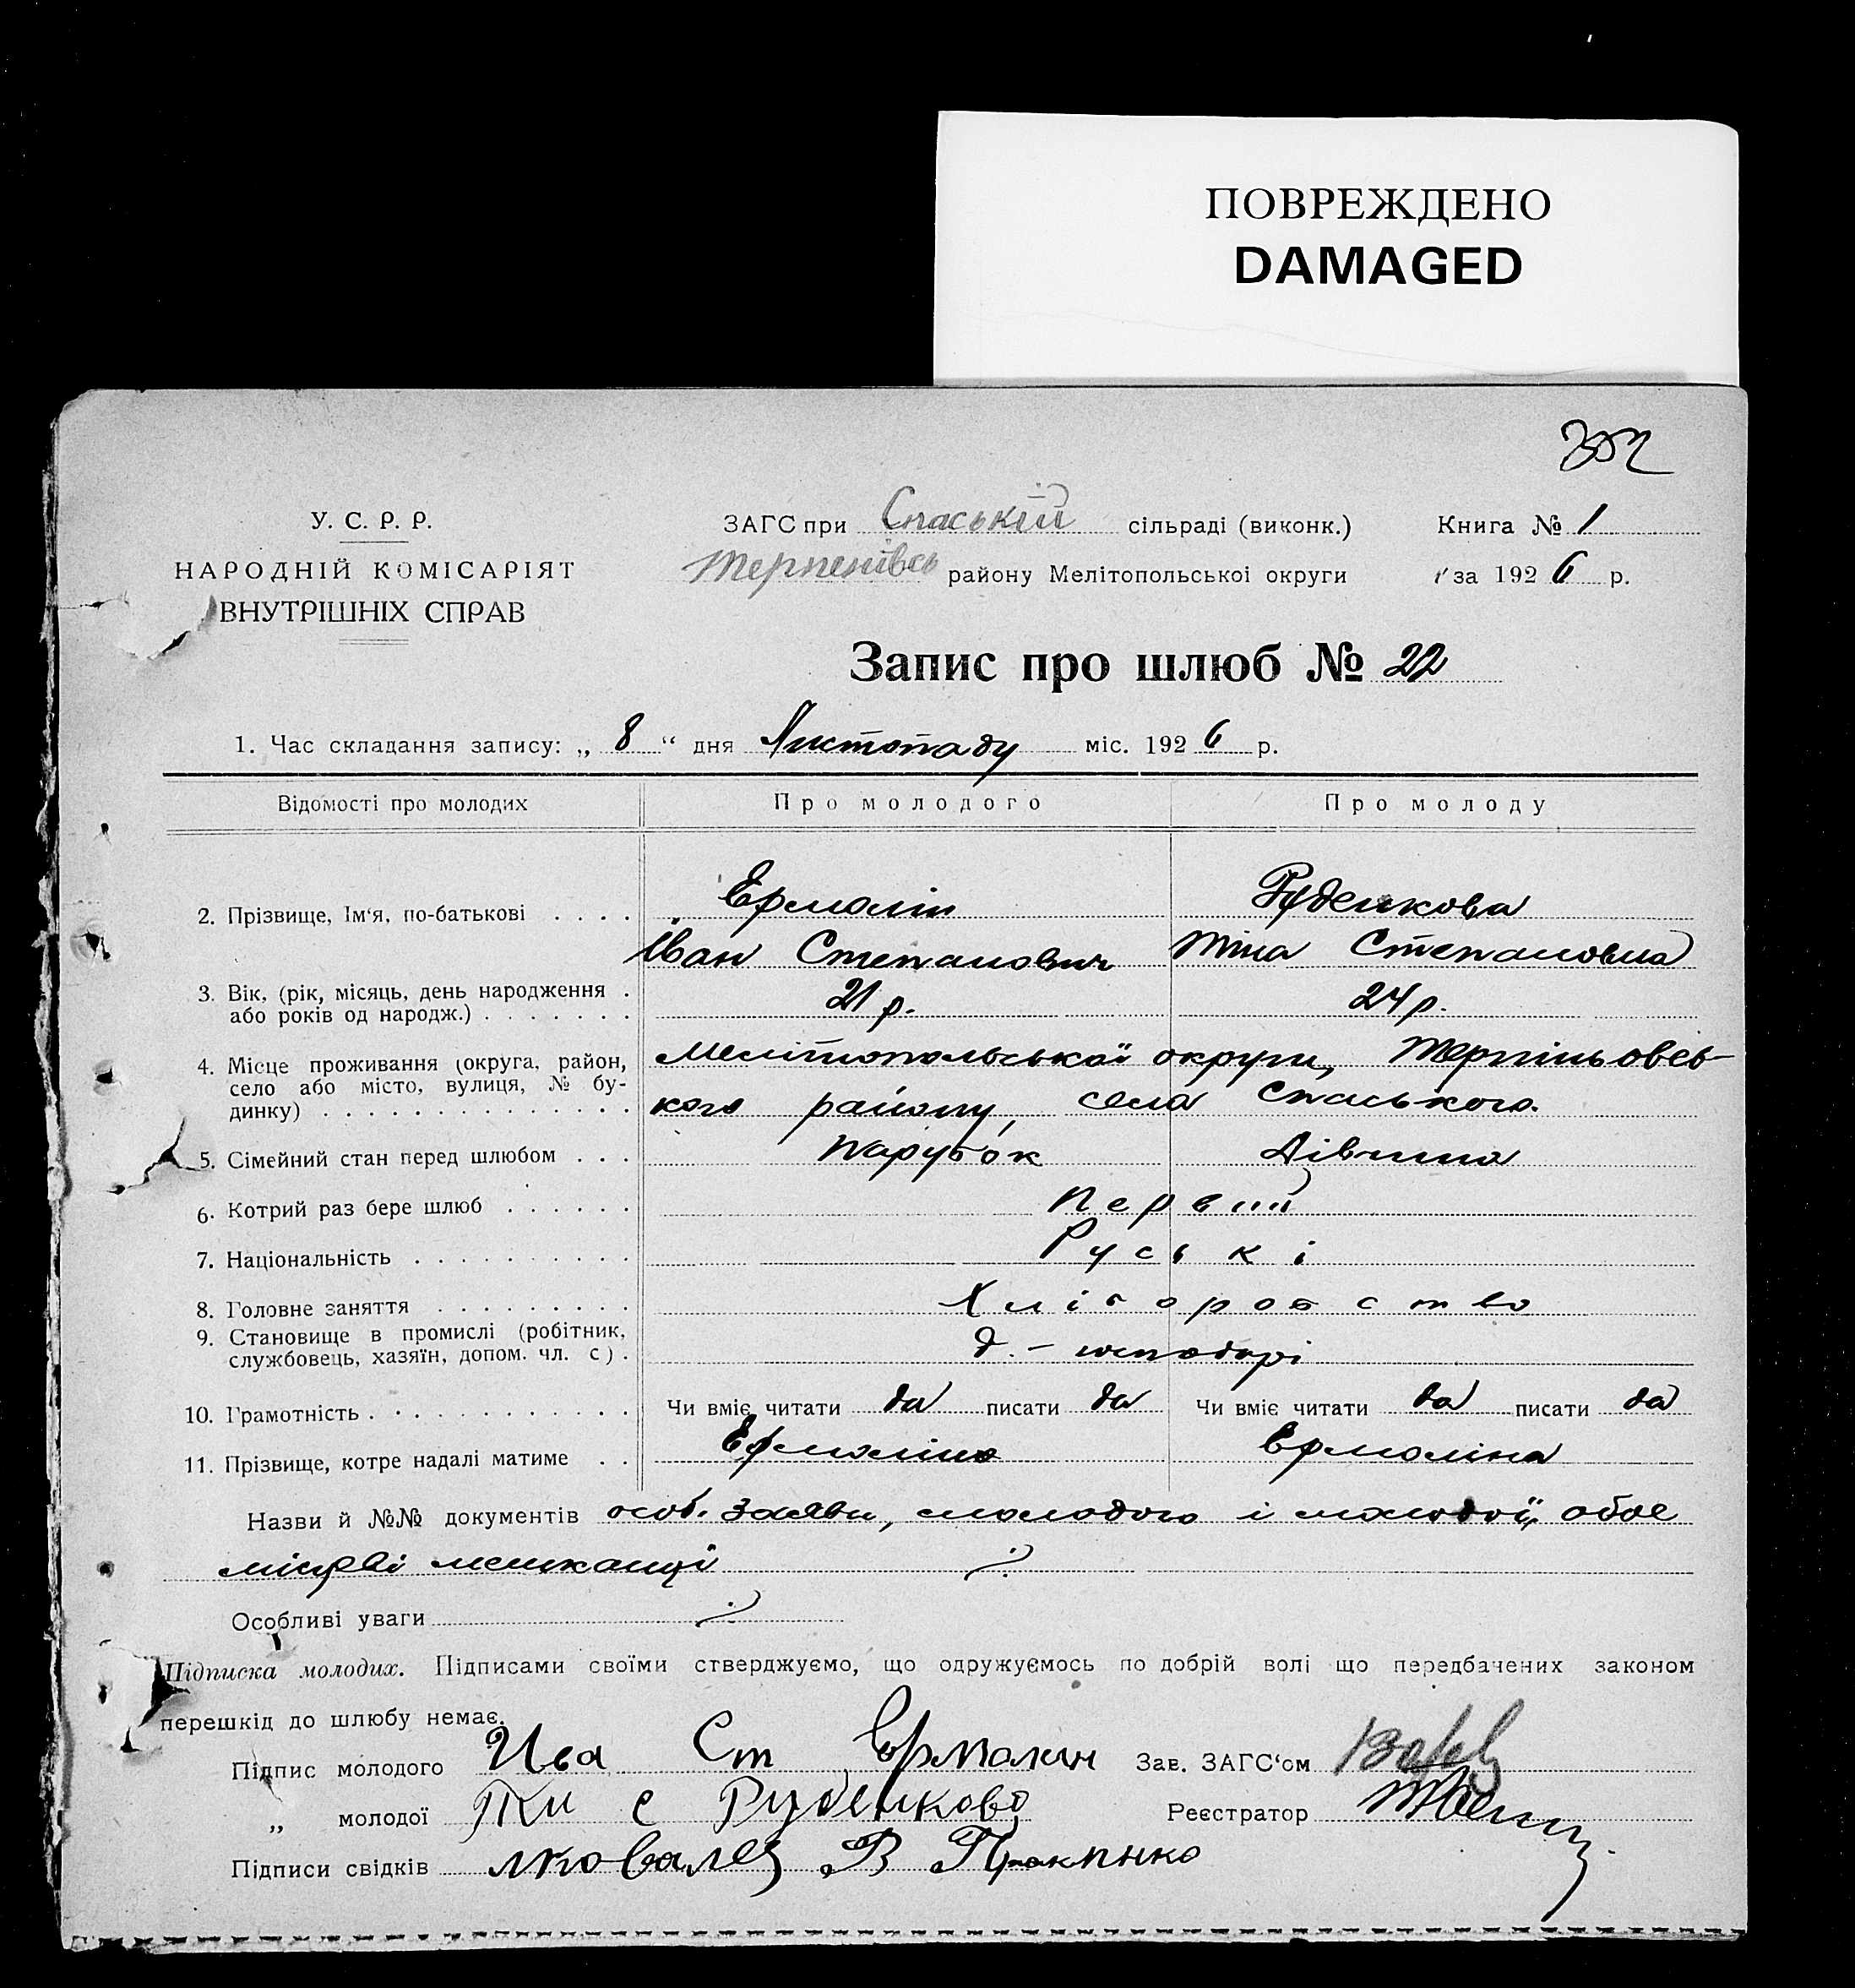 ПОВРЕЖДЕНО
DAMAGED
352
У. С. Р. Р.
НАРОДНІЙ КОМІСАРІЯТ
ВНУТРІШНІХ СПРАВ
ЗАГС при Спаській сільраді (виконк.)
Терпенівсь району Мелітопольськоі округи
Книга № 1
за 1926 р.
Запис про шлюб № 22
1. Час складання запису: „ 8 “ дня Листопаду міс. 1926 р.
Відомості про молодих Про молодого Про молоду
2. Прізвище, Ім‘я, по-батькові . . . . Ермолін Руденкова
Іван Степанович Тіна Степановна
3. Вік, (рік, місяць, день народження .
або років од народж.) . . . . . . . 21 р. 24 р.
4. Місце проживання (округа, район, Мелітопольської округи, Терпіньовсь-
село або місто, вулиця, № бу-
динку) . . . . . . . . . . . . . . кого району, села Спаського.
5. Сімейний стан перед шлюбом . . . парубок дівчина
6. Котрий раз бере шлюб . . . . . . первий
7. Національність . . . . . . . . . . Руські
8. Головне заняття . . . . . . . . . Хліборобство
9. Становище в промислі (робітник,
службовець, хазяїн, допом. чл. с) . д. –
10. Грамотність . . . . . . . . . . . . Чи вміє читати да писати да Чи вміє читати да писати да
11. Прізвище, котре надалі матиме . . Ермоліна Ермоліна
Назви й №№ документів особ. заяви, молодого і молодої, обоє
місцеві мешканці
Особливі уваги
Підписка молодих. Підписами своїми стверджуємо, що одружуємось по добрій волі що передбачених законом
перешкід до шлюбу немає.
Підпис молодого Ива Ст Ермолин Зав. ЗАГС‘ом
„ молодої с Руденкова Реєстратор
Підписи свідків В